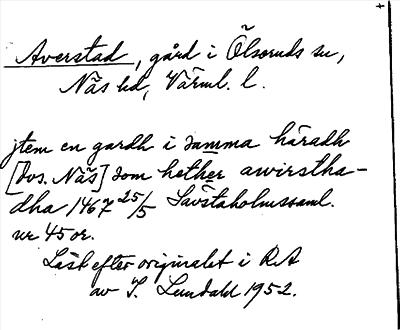 Averstad, gård i Ölseruds sn,
Näs hd, Värml. l.
jtem en gardh i samma häradh
[dvs. Näs] som hether awirstha-
dha 1467 25/5 Sävstaholmssaml.
nr 45 or.
Läst efter originalet i RA
av I. Lundahl 1952.